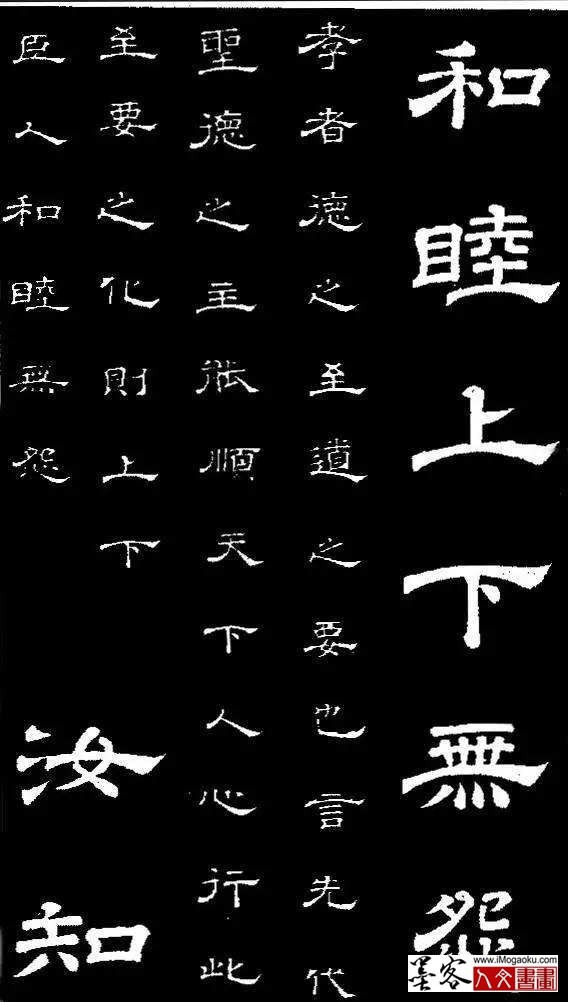 和睦上下無怨
孝者德之至道之要也言先代
聖德之主能順天下人心行此
至要之化則上下
臣人和睦無怨
汝知
墨客
www.iMogaoku.com
人文書畫